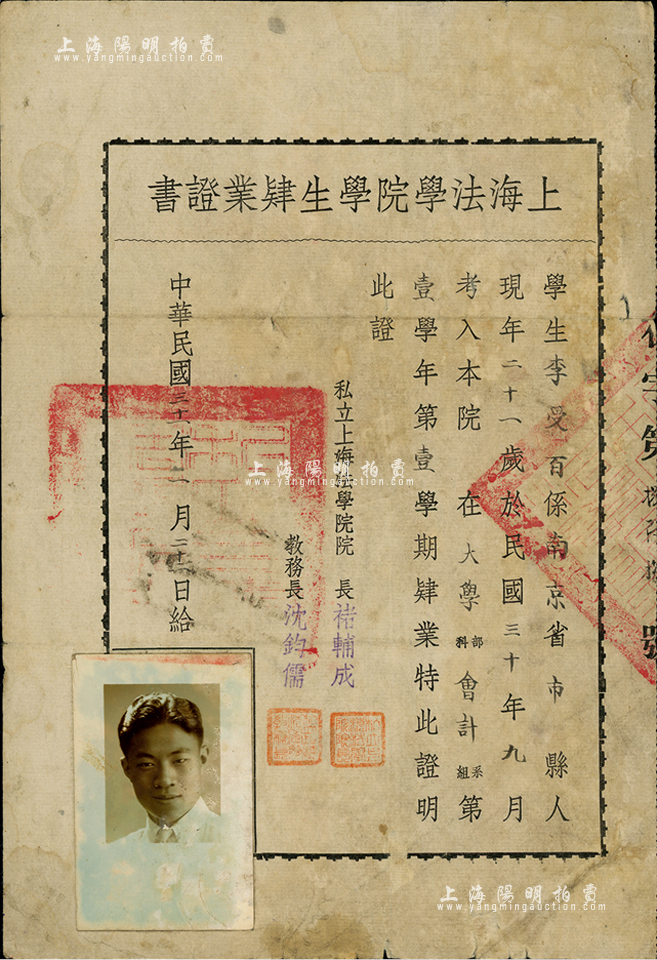 上海陽明拍賣
www.yangmingauction.com
上海法學院學生肄業證書
學生李受百係南京省市縣人
現年二十一歲於民國三十年九月
考入本院在大學部科會計系組第
壹學年第壹學期肄業特此證明
此證
私立上海法學院院長褚輔成
教務長沈鈞儒
中華民國三十年 月二十 日給
字第
號
上海陽明拍賣
www.yangmingauction.com
上海陽明拍賣
www.yangmingauction.com